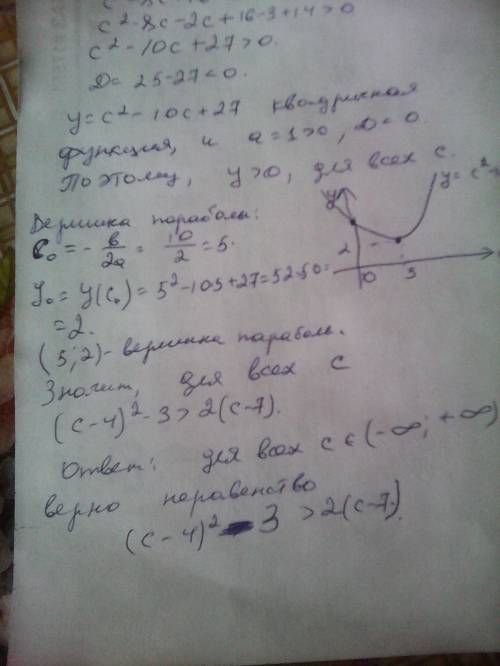 c² - 8c - 2c + 16 - 3 + 14 > 0
c² - 10c + 27 > 0.
D = 25 - 27 < 0.
y = c² - 10c + 27 квадричная
функция, и a = 1 > 0, D < 0
Поэтому, y > 0, для всех c.
y
y = c²
2
0
5
Вершина параболы:
c₀ = - b/2a = 10/2 = 5.
y₀ = y(c₀) = 5² - 10·5 + 27 = 52-50 =
= 2.
(5; 2) - вершина параболы.
Значит, для всех c
(c - 4)² - 3 > 2(c - 7).
Ответ: для всех c ∈ (-∞; +∞)
верно неравенство
(c - 4)² - 3 > 2(c - 7).